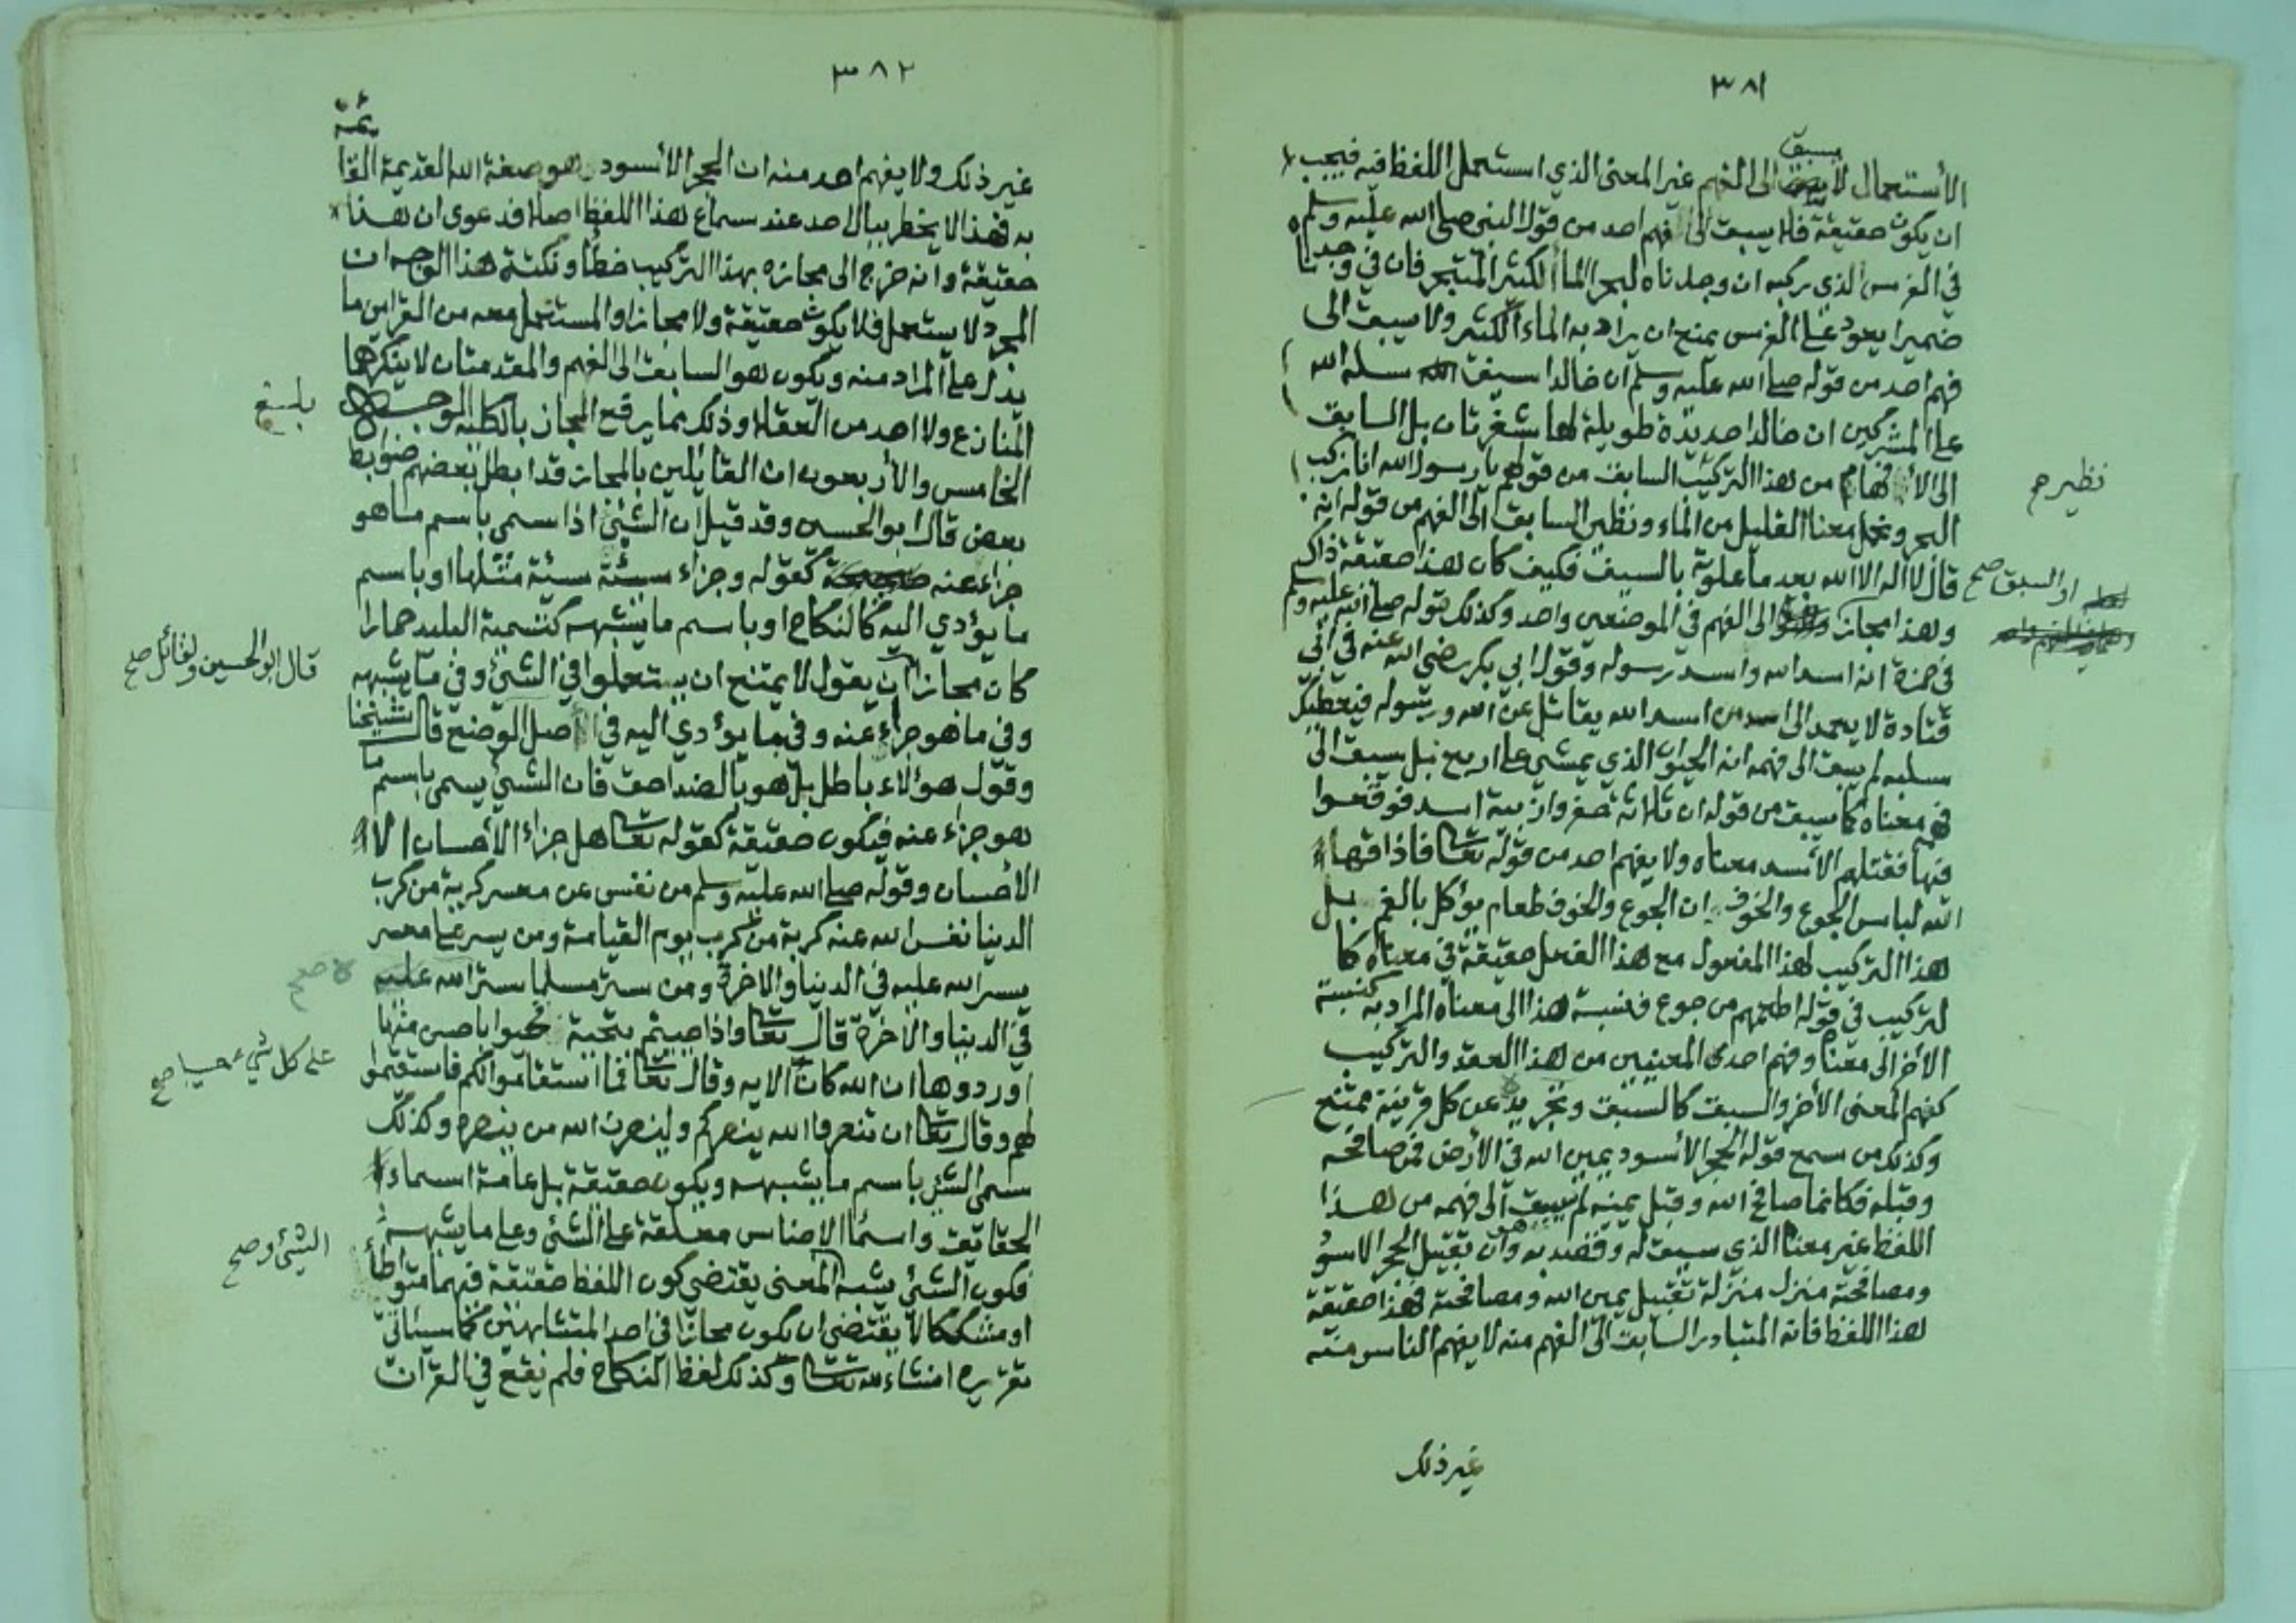 ٣٨١
يسبق
الأستعمال لا الى الفهم غير المعنى الذي استعمل اللفظ فيه فيجب
ان يكون حقيقة فلا يسبق الى فهم احد من قول النبي صلى الله عليه وسلم
في الفرس الذي ركبه ان وجدناه لبحر الماأ الكثير المتبحر فان في وجدناه
ضميرا يعود على الفرس يمنع ان يراد به الماء الكثير ولا يسبق الى
فهم احد من قوله صلى الله عليه وسلم ان خالدا سيف الله سله الله
على المشركين ان خالدا حديدة طويلة لها شفرتان بل السابق
الى الأفهام من هذا التركيب السابق من قولهم يا رسول الله انا نركب
نظير صح
البحر ونحمل معنا القليل من الماء ونظير السابق الى الفهم من قوله انه
قال لا اله الا الله بعد ما علوته بالسيف فكيف كان هذا حقيقة ذاك
او السبق صح
وهذا مجاز الى الفهم في الموضعين واحد وكذلك قوله صلى الله عليه وسلم
في حمزة انه اسد الله واسد رسوله وقول ابي بكر رضي الله عنه في ابي
قتادة لا يعمد الى اسد من اسد الله يقاتل عن الله ورسوله فيعطيك
سلبه لم يسبق الى فهمه انه الحيوان الذي يمشي على اربع بل يسبق الى
فهم معناه كما يسبق من قوله ان ثلاثة حفروا زبية اسد فوقعوا
فيها فقتلهم الأسد معناه ولا يفهم احد من قوله تعا فاذاقها
الله لباس الجوع والخوف ان الجوع والخوف طعام يؤكل بالفم بل
هذا التركيب لهذا المفعول مع هذا الفعل حقيقة في معناه كا
لتركيب في قوله اطعمهم من جوع فنسبة هذا الى معناه المراد به كنسبة
الاخر الى معناه وفهم احدى المعنيين من هذا العقد والتركيب
كفهم المعنى الأخر والسبق كالسبق وتجريده عن كل قرينة ممتنع
وكذلك من سمع قوله الحجر الأسود يمين الله في الأرض فمن صافحه
وقبله فكانما صافح الله وقبل يمينه لم يسبق الى فهمه من هذا
اللفظ غير معناه الذي سيق له وقصد به وهو ان تقبيل الحجر الاسود
ومصافحته منزل منزلة تقبيل يمين الله ومصافحته فهذا حقيقة
هذا اللفظ فانه المتبادر السابق الى الفهم منه لا يفهم الناس منه
غير ذلك
٣٨٢
غير ذلك ولا يفهم احد منه ان الحجر الأسود هو صفة الله القديمة القا
ئمة
به فهذا لا يخطر ببال احد عند سماع هذا اللفظ اصلا فدعوى ان هذا
حقيقة وانه خرج الى مجازه بهذا التركيب خطأ ونكتة هذا الوجه ان
المجرد لا يستعمل فلا يكون حقيقة ولا مجازا والمستعمل معه من القراين ما
يدل على المراد منه ويكون هو السابق الى الفهم والمقدمتان لا ينكرهما
المنازع ولا احد من العقلاء وذلك مما يرفع المجاز بالكلية الوجه
بلغ
الخامس والأربعون ان القائلين بالمجاز قد ابطل بعضهم ضوابط
بعض قال ابو الحسين وقد قيل ان الشيئ اذا سمي باسم ما هو
جزاء عنه كقوله وجزاء سيئة سيئة مثلها او باسم
ما يؤدي اليه كالنكاح او باسم ما يشبهه كتسمية البليد حمارا
قال ابو الحسين ولقائل صح
كان مجازا ان يقول لا يمتنع ان يستعملوا في الشيئ وفي ما يشبهه
وفي ما هو جزاء عنه وفي ما يؤدي اليه في اصل الوضع قال شيخنا
وقول هؤلاء باطل بل هو بالضد احق فان الشيئ يسمى باسم ما
هو جزاء عنه فيكون حقيقة كقوله تعا هل جزاء الأحسان الا
الأحسان وقوله صلى الله عليه وسلم من نفس عن معسر كربة من كرب
الدنيا نفس الله عنه كربة من كرب يوم القيامة ومن يسر على معسر
يسر الله عليه في الدنيا والاخرة ومن ستر مسلما ستر الله عليه
في الدينا والاخرة قال تعا واذا حييتم بتحية فحيوا باحسن منها
على كل شيء حسيبا صح
او ردوها ان الله كان الايه وقال تعا فما استقاموا لكم فاستقيموا
لهم وقال تعا ان تنصروا الله ينصركم ولينصرن الله من ينصره وكذلك
سمي الشيئ باسم ما يشبهه ويكون حقيقة بل عامة اسماء
الحقايق واسماأ الاجناس معلقة على الشيئ وعلى ما يشبهه
الشيئ وصح
فكون الشيئ يشبه المعنى يقتضي كون اللفظ حقيقة فيهما متواطأ
او مشككا لا يقتضي ان يكون مجازا في احد المتشابهين كما سيأتي
تقريره انشاء الله تعا وكذلك لفظ النكاح فلم يقع في القرآن